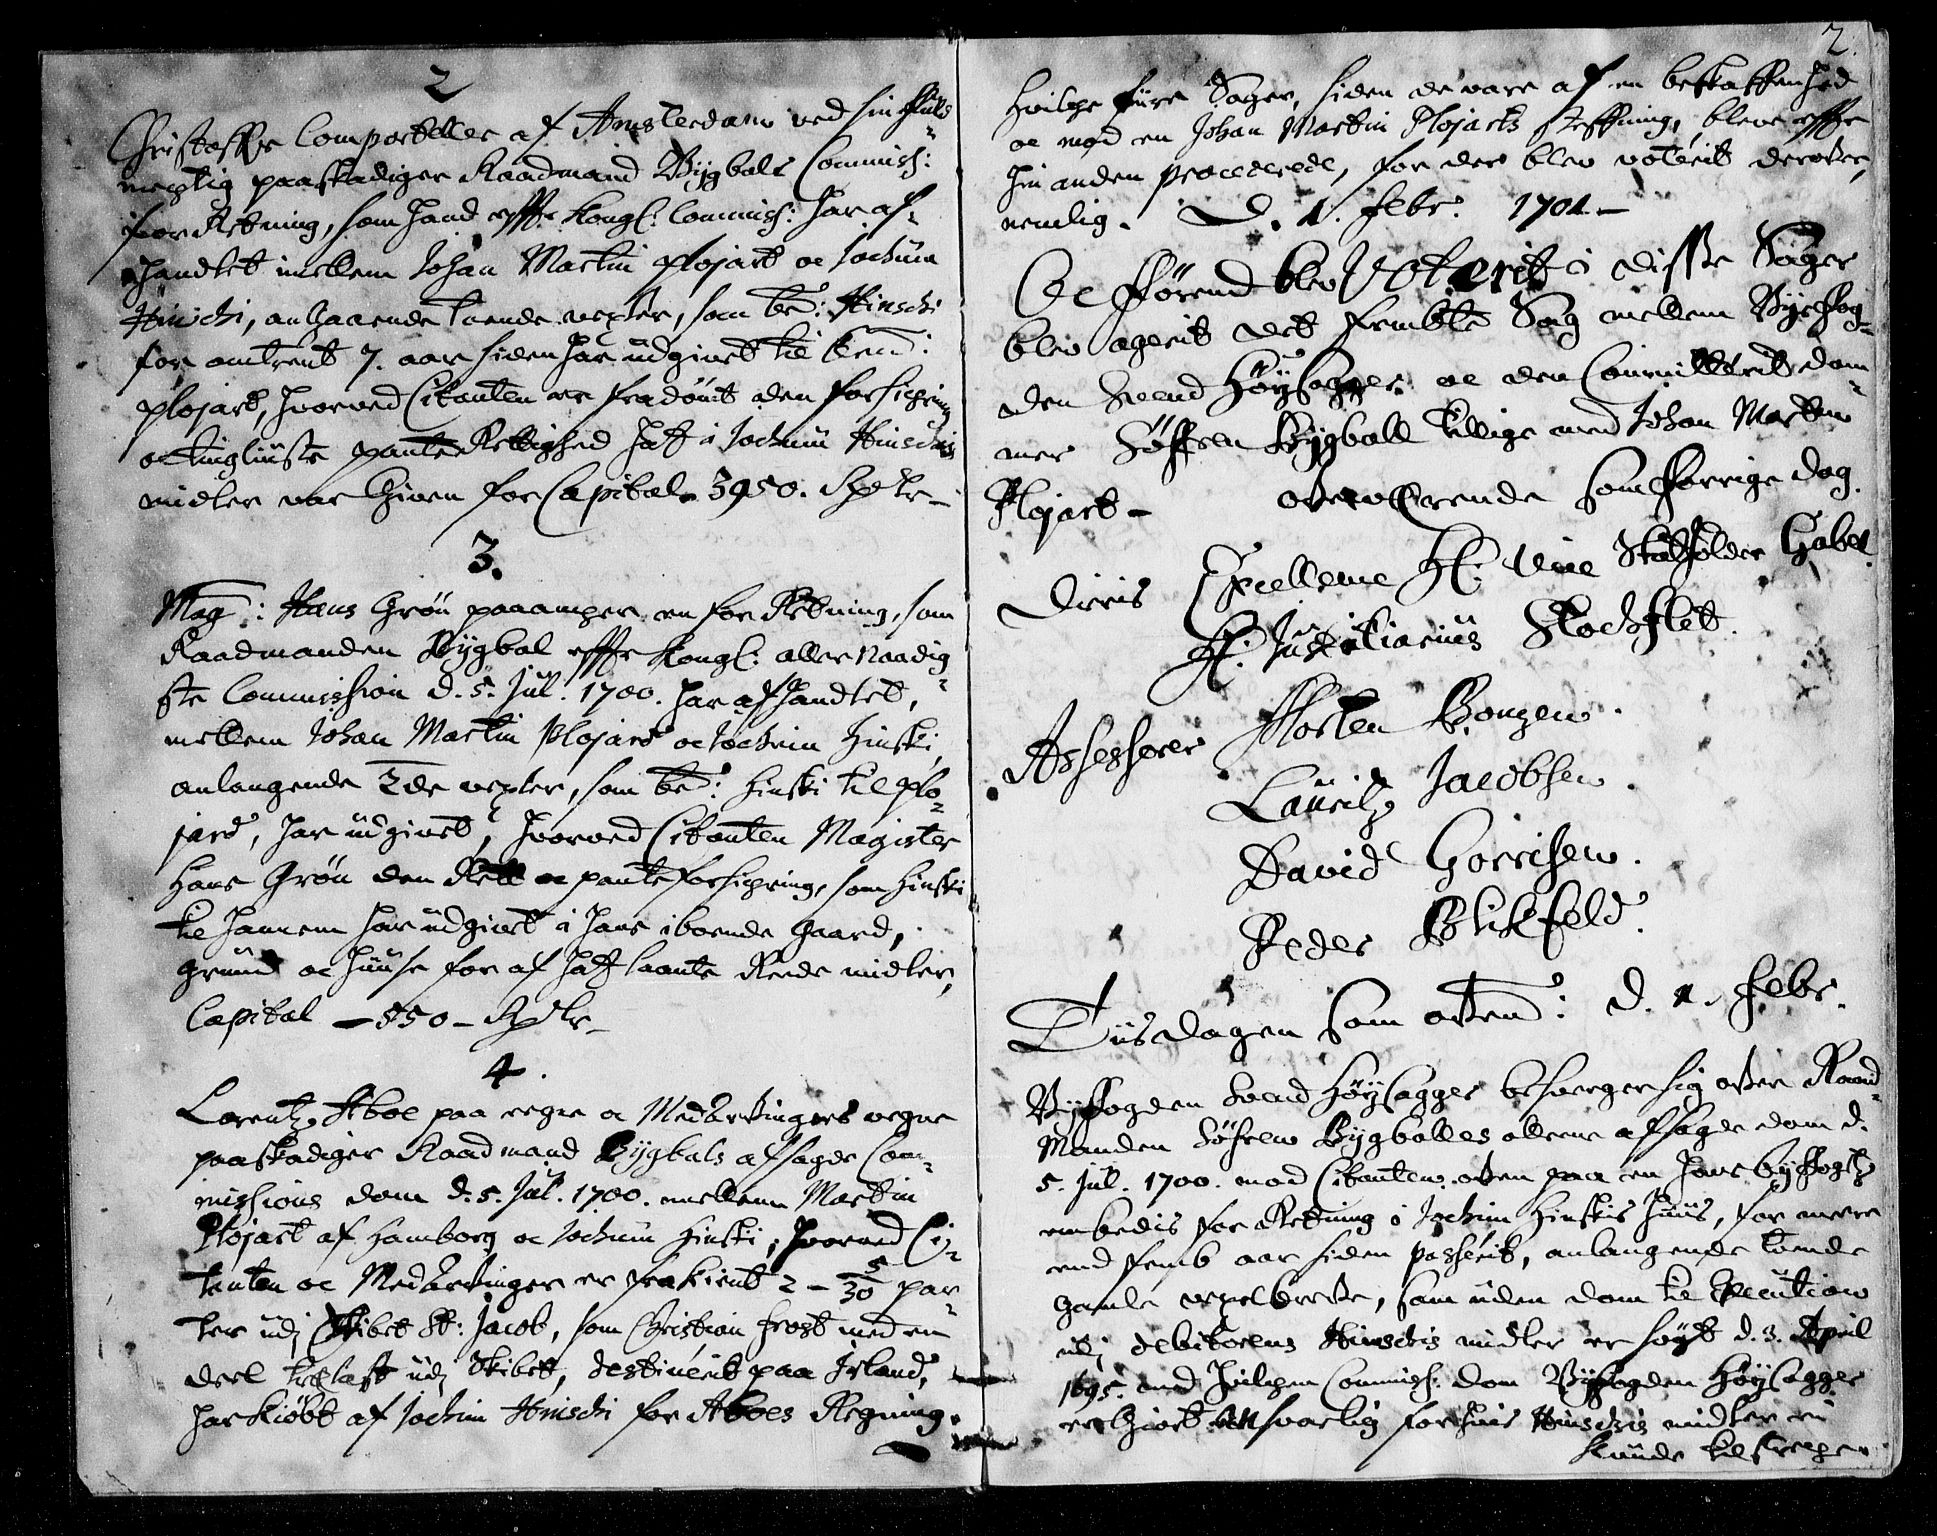 2
Christoffer Comportelles af Amsterdam ved sin fuld-
megtig paaskadiger Raadmand Bygbals Commiss:
forRetning, som hand efft Kongl: Commiss: har af-
handlet imellem Johan Martin plojart oc Jochum
Hinschi, anlgaaende tvende vexler, som be: Hinschi
for omtrent 7. aar siden har udgivet til bem:
plojart, hvorved Citanten er fradömt den forsichring
oc tingliuste pante Rettighed hand i Jochum Hinschis
midler var Given for Capital 3950. Rdlr-
3.
Mag: Hans Grön paaancher en forRetning, som
Raadmanden Bygbal efft Kongl: aller Naadig-
ste Commission d. 5. Jul. 1700. har afhandlet,
mellem Johan Martin Plojard oc Jochim Hinski,
anlangende 2de vexler, som be: Hinski til plo-
jard, har udgivet, hvorved Citanten Magister
Hans Grön den Rett oc panteforsichring, som Hinski
til hannem har udgivet i hans iboende Gaard,
Grund oc huuse for af hand laante Rede midler,
Capital - 550 - Rdlr-
4.
Lorentz Aboe paa egne oc Medarvingers vegne
paaskadiger Raadmand Bygbals afsagde Com-
missions dom d. 5. Jul. 1700. mellem Martin
Plojart af Hamborg oc Jochum Hinski, hvorved Ci-
tanten oc Medarvinger er frakient 2 - 5/30 par-
ter udj Skibet St: Jacob, som Christian Frost med en
deel trelast udj Skibet, destinerit paa Irland,
har Kiöbt af Jochim Hinschi for Aboes Regning.
2.
Hvilche fiire Sager, siden de vare af en beskaffenhed
oc mod en Johan Martin Plojarts steffning, bleve efft
hin anden procederede, for der blev voterit derover,
nemlig. D. 1. Febr. 1701-
Oc förend blev Voterit i disse Sager
blev agerit det fembte Sag mellem Byefog-
den Svend Höysagger oc den Committerit dom-
mer Söffren Bygball tillige med Johan Martin
Plojart- oververende som forrige dag.
Deris Excellence Hr. Vice Statholder Gabel.
Hr. Justitiarius Stockflet.
Assessorer Morten Bonzen.
Lauritz Jacobsen.
David Gorrissen.
Peder Blikfeld.
Tiisdagen som oven: d. 1. Febr.
Byfogden Svend Höysagger besverger sig over Raad-
Manden Söfren Bygballes alleene afsagde dom d.
5. Jul. 1700. mod Citanten. oven paa en hans byfogtz
embedis forRetning i Jochim Hinskis huus, for meere
end femb aar siden passerit, anlangende tvende
gamle vexelbreve, som uden dom til Execution
udj debitorens Hinschis midler er sögt d. 3. April
1695. med hvilchen Commiss: dom Byfogden Höysagger
er Giort ansvarlig for huis Hinschis midler ei
kunde tilstreche